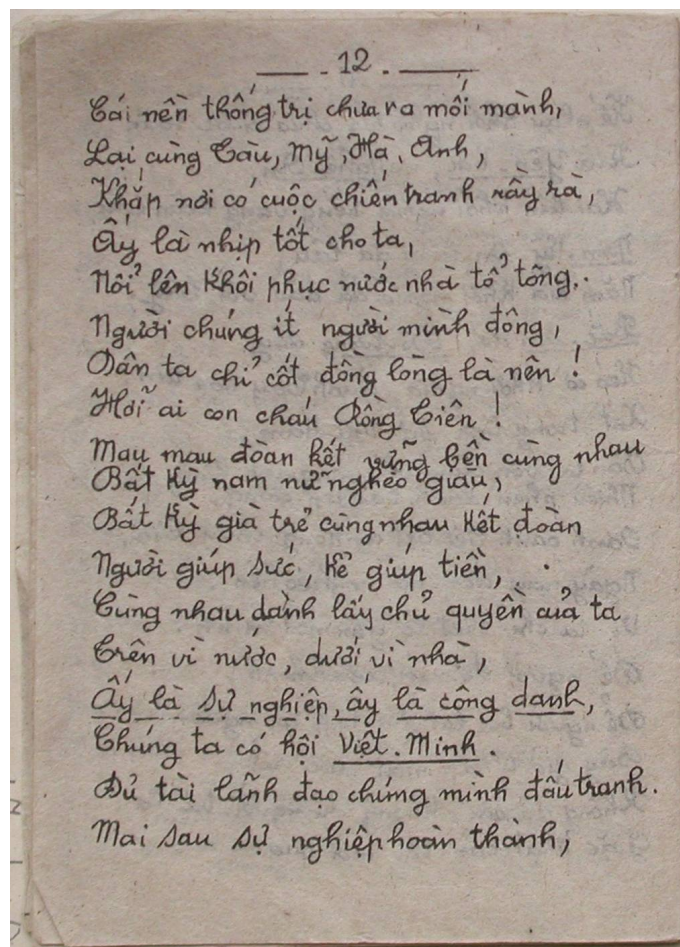 — . 12 . —
Cái nền thống trị chưa ra mối mành,
Lại cùng Tàu, Mỹ, Hà, Anh,
Khắp nơi có cuộc chiến tranh rầy rà,
Ấy là nhịp tốt cho ta,
Nổi lên khôi phục nước nhà tổ tông.
Người chúng ít người mình đông,
Dân ta chỉ cốt đồng lòng là nên !
Hỡi ai con cháu Rồng Tiên !
Mau mau đoàn kết vững bền cùng nhau
Bất kỳ nam nữ nghèo giàu,
Bất kỳ già trẻ cùng nhau kết đoàn
Người giúp sức, kẻ giúp tiền,
Cùng nhau dành lấy chủ quyền của ta
Trên vì nước, dưới vì nhà,
Ấy là sự nghiệp, ấy là công danh,
Chúng ta có hội Việt. Minh.
Đủ tài lãnh đạo chúng mình đấu tranh.
Mai sau sự nghiệp hoàn thành,